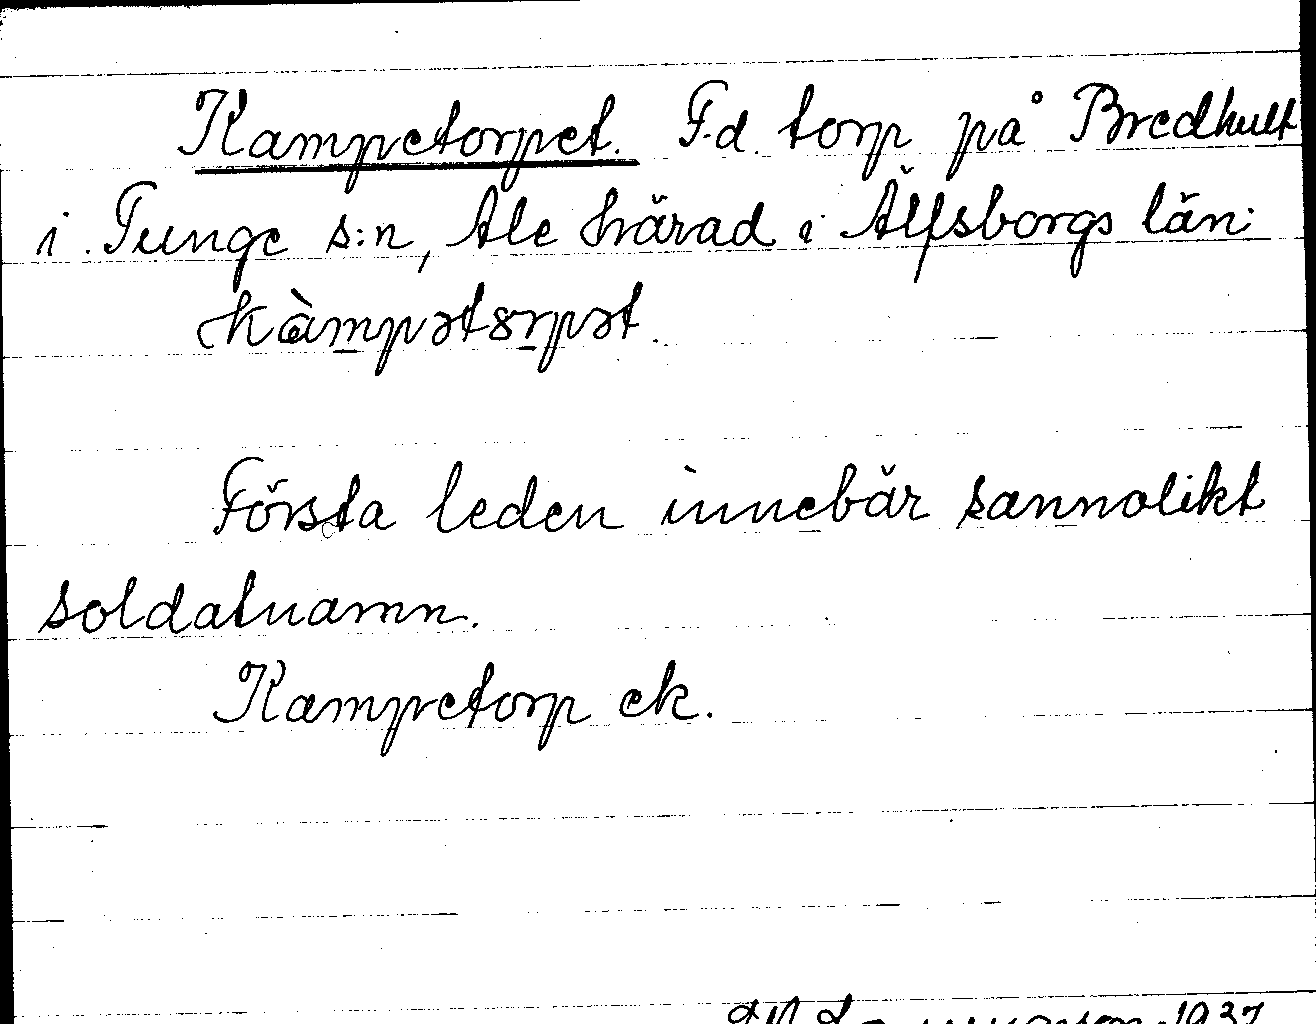 Kampetorpet. F.d. torp på Bredhult
i Tunge s:n, Ale härad i Älfsborgs län.
kàmpətȣrpət.
Första leden innebär sannolikt
soldatnamn.
Kampetorp ek.
1937